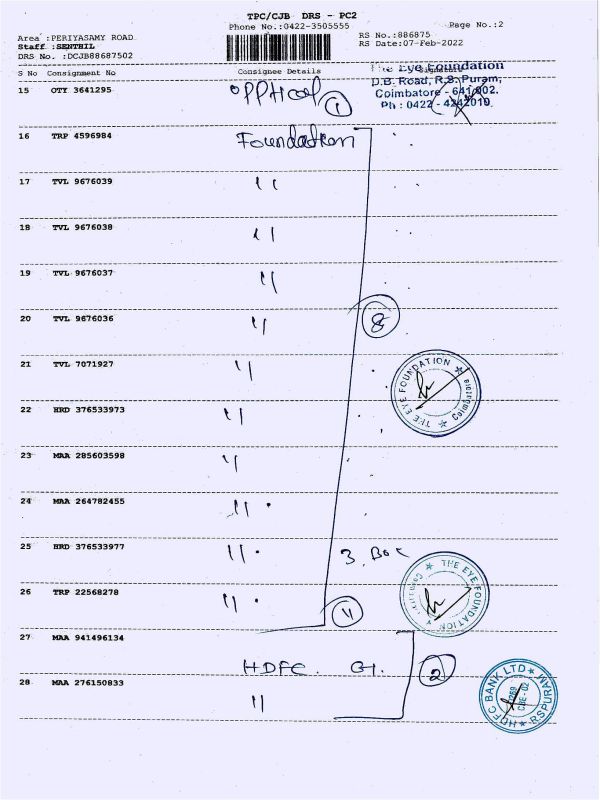 TPC/CJB DRS - PC2
Phone No.:0422-3505555
Page No.:2
Area :PERIYASAMY ROAD
RS No.:886875
Staff :SENTHIL
RS Date:07-Feb-2022
DRS No. :DCJB88687502
S No Consignment No Consignee Details
The Eye Foundation
D.B. Road, R.S. Puram,
Coimbatore - 641 002.
Ph : 0422 - 4242010.
15 OTY 3641295 Opptical 1
16 TRP 4596984 Foundation
17 TVL 9676039 "
18 TVL 9676038 "
19 TVL 9676037 "
20 TVL 9676036 " 8
21 TVL 7071927 "
THE EYE FOUNDATION ★ Coimbatore ★
22 HRD 376533973 "
23 MAA 285603598 "
24 MAA 264782455 "
25 HRD 376533977 " 3. Box
THE EYE FOUNDATION
26 TRP 22568278 " 11
27 MAA 941496134 HDFC 2
28 MAA 276150833 "
HDFC BANK LTD ★ RSPURAM ★